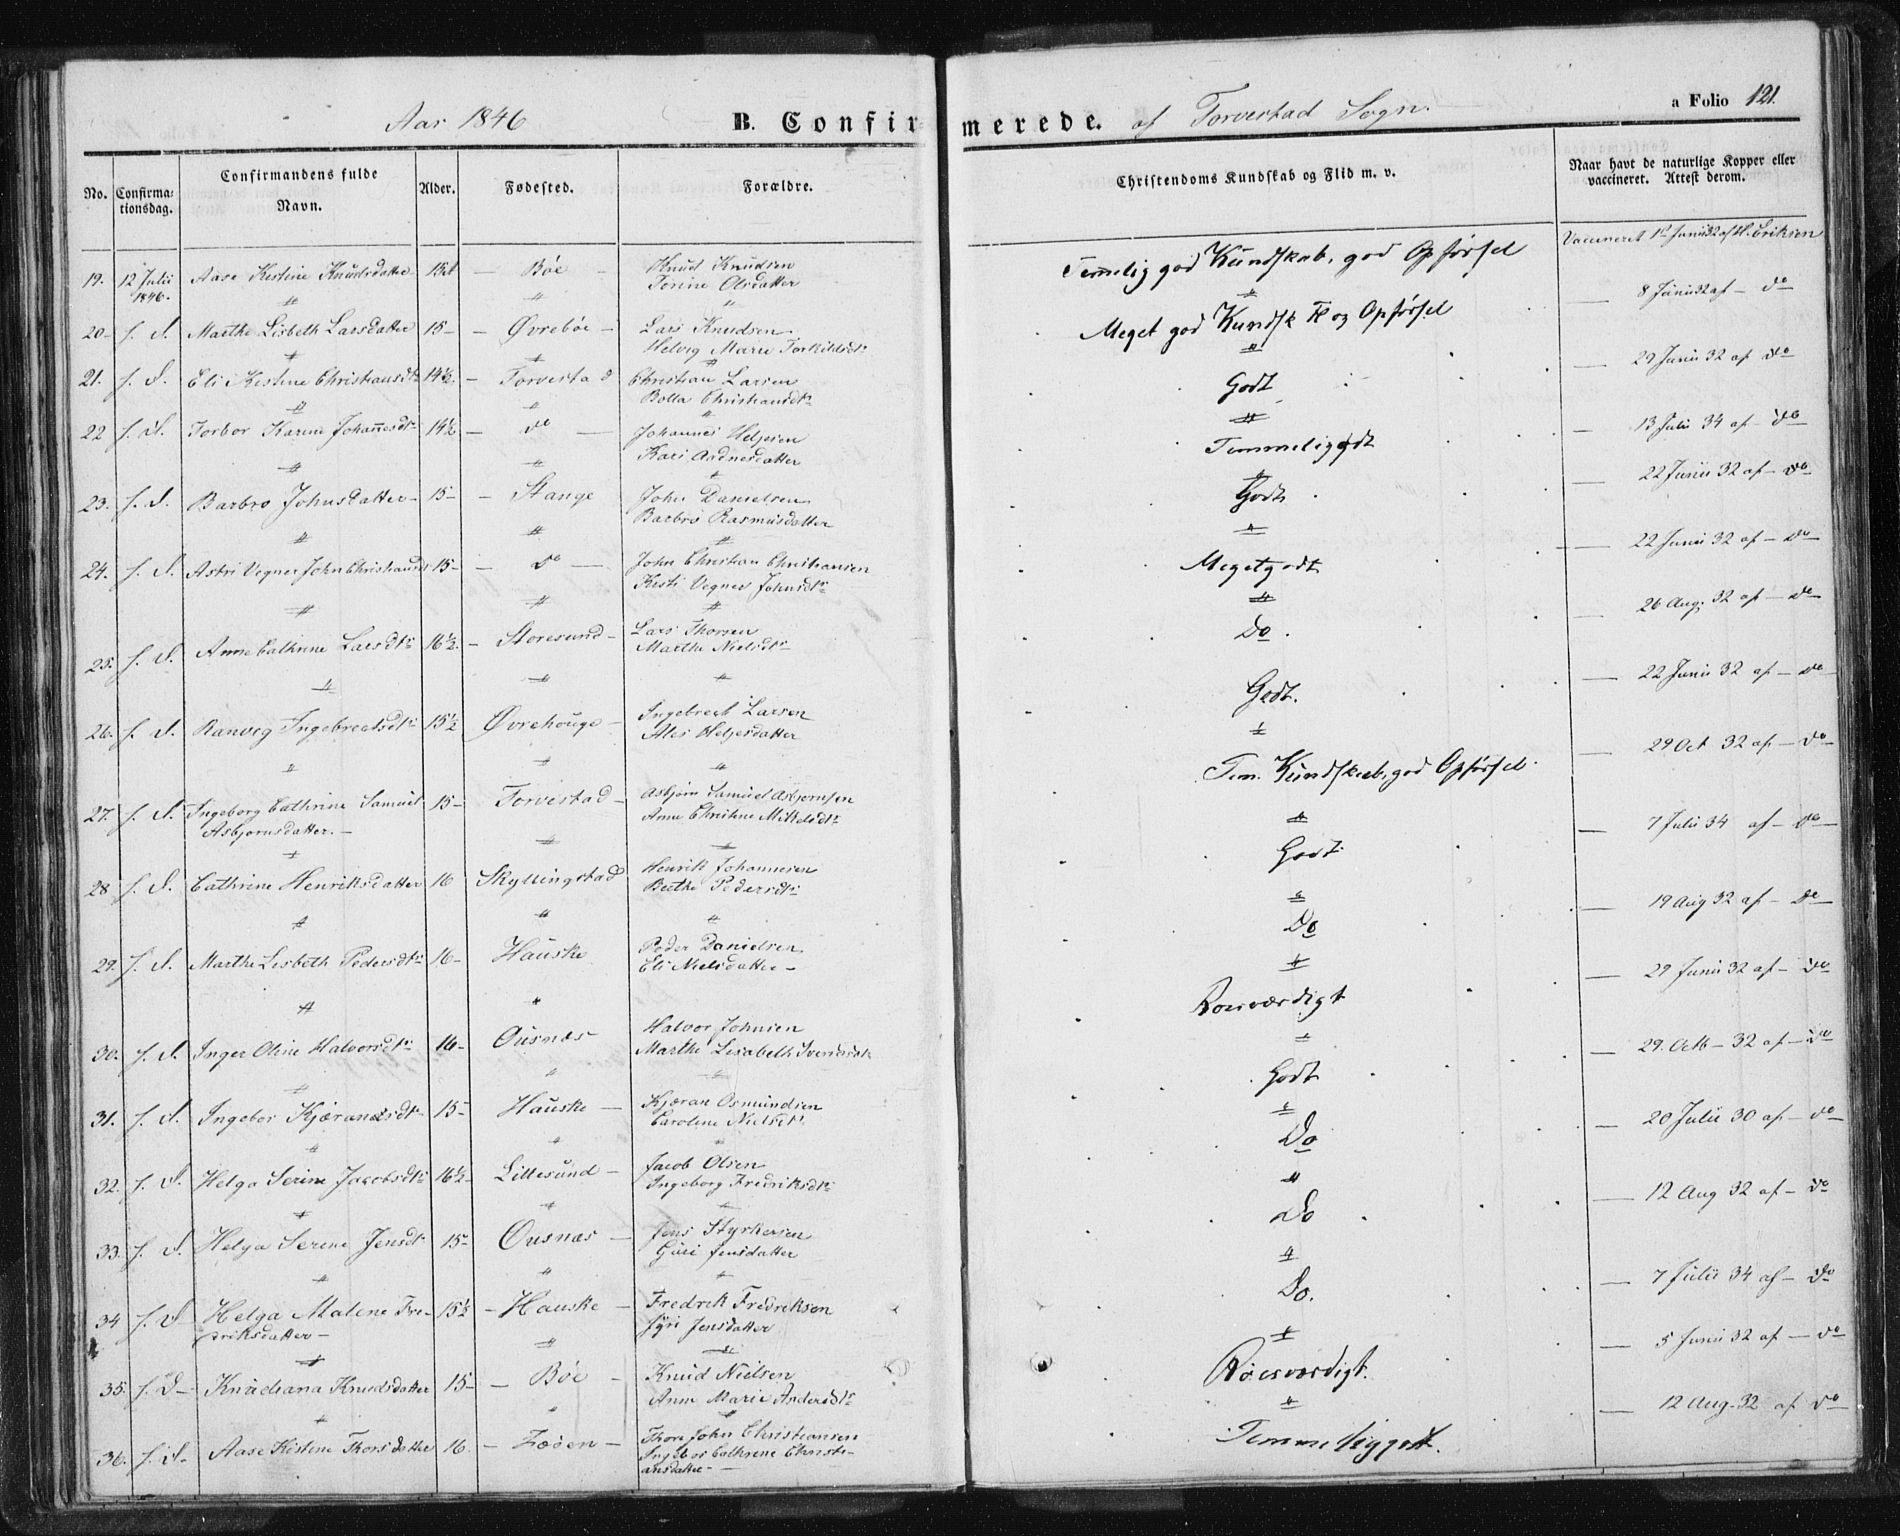 Aar 1846 B. Confirmerede. af Torvestad Sogn. a Folio 121.
No. Confirmationsdag. Confirmandens fulde Navn. Alder. Fødested. Forældre. Christendoms Kundskab og Flid m. v. Naar havt de naturlige Kopper eller vaccineret. Attest derom.
19. 12 Julii 1846. Aase Kistine Knudsdatter Bøe Knud Knudsen Temmelig god Kundskab, god Opførsel Vaccineret 1ste Junii 32 af H. Eriksen
Torine Olsdatter
20 f. d. Marthe Lisbeth Larsdatter 15 Øvrebøe Lars Knudsen Meget god Kundsk og Opførsel 8 Junii 32 af do
Helvig Marie Torkildsdtr
21. f. d. Eli Kistine Christiansdtr 14½ Torvestad Christian Larsen Godt 29 Junii 32 af do
Bolla Christiansdtr
22 f. d. Torbor Karine Johannesdtr 14½ do Johannes Heljesen Temmeliggodt 13 Julii 34 af do
Kari Aadnesdatter
23. f. d. Barbro Johnsdatter 15 Stange John Danielsen Godt 22 Junii 32 af do
Barbro Rasmusdatter
24. f. d. Astri Vegner John Christiansd 15 do John Christian Christiansen Megetgodt 22 Junii 32 af do
Kisti Vegner Johnsdtr
25. f. d. Anne Cathrine Larsdtr 16½ Storesund Lars Thorsen Do 26 Aug. 32 af do
Marthe Nielsdtr
26. f. d. Ranveg Ingebretsdtr 15½ Øvrehouge Ingebret Larsen Godt. 22 Junii 32 af do
Ales Heljesdatter
27. f. d. Ingeborg Cathrine Samuel 15 Torvestad Asbjørn Samuel Asbjørnsen Tem. Kundskab, god Opførsel 29 Oct 32 af do
Asbjørnsdatter. Anne Christine Mikelsdtr
28 f. d. Cathrine Henriksdatter 16 Skyllingstad Henrik Johannesen Godt 7 Julii 34 af do
Berthe Pedersdtr
29. f. d. Marthe Lisbeth Pedersdtr 16 Hauske Peder Danielsen Do 19 Aug 32 af do
Eli Nielsdatter
30. f. d. Inger Oline Halvorsdtr 16 Ousnæs Halvor Johnsen Roesværdigt 29 Junii 32 af do
Marthe Lisabeth Svendsdtr
31. f. d. Ingebor Kjæransdtr 15 Hauske Kjæran Osmundsen Godt 29. Octb 32 af do
Caroline Nielsdtr
32. f. d. Helga Serine Jacobsdtr 16½ Lillesund Jacob Olsen Do 20 Julii 30 af do
Ingeborg Fredriksdtr
33. f. d. Helga Serine Jensdtr 15 Ousnæs Jens Styrkersen Do 12 Aug 32 af do
Guri Jensdatter
34 f. d. Helga Malene Fre- 15½ Hauske Fredrik Fredriksen Do. 7 Julii 34 af do
driksdatter Jensdatter
35. f. d. Knudiana Knudsdatter 15 Bøe Knud Nielsen Roesværdigt. 5 Junii 32 af do
Anne Marie Andersdtr
36. f. d. Aase Kistine Thorsdatter 16. Thore John Christiansen Temmeliggodt. 12 Aug. 32 af do
Ingebor Cathrine Christi-
ansdatter